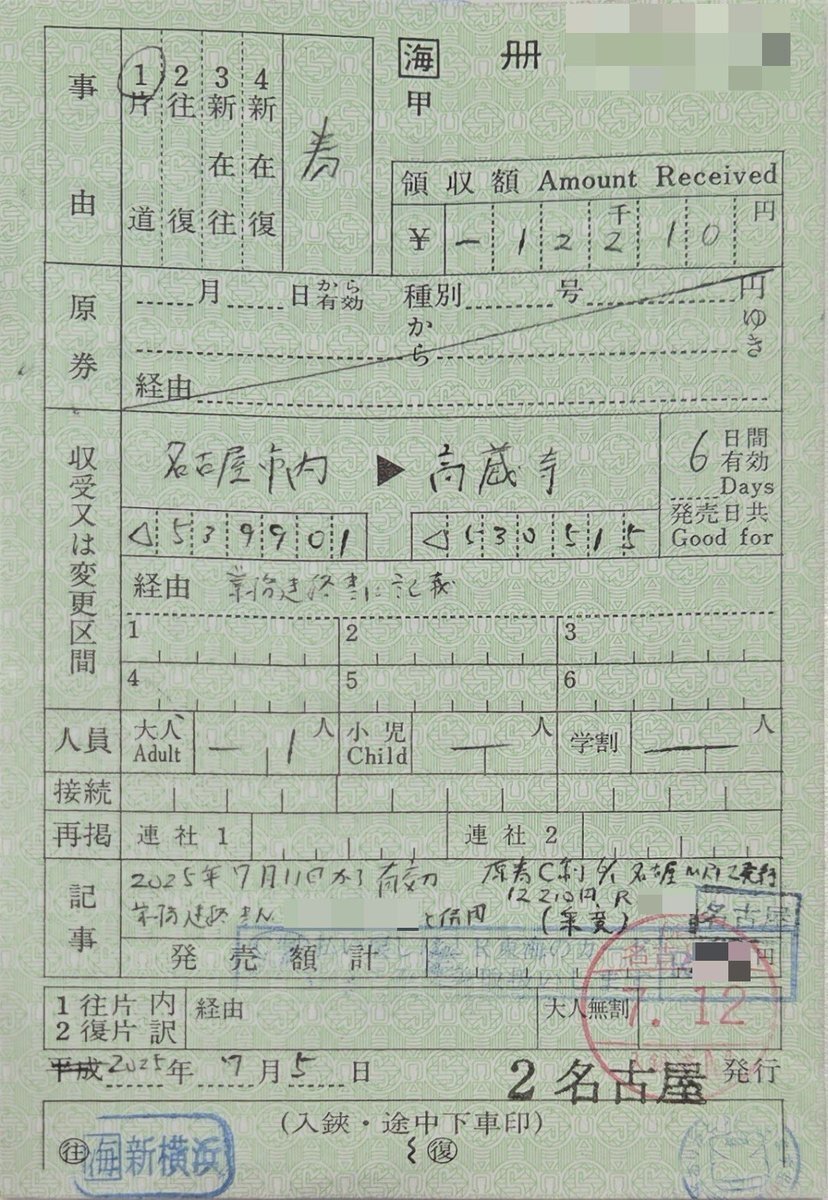 海 冊
甲
事由
1片道 2往復 3新在往 4新在復
領収額 Amount Received
¥ - 1 2 千2 1 0 円
原券
月 日から有効 種別 号 円
から ゆき
経由
収受又は変更区間
名古屋市内 ▶ 高蔵寺
6 日間有効 Days
発売日共 Good for
◁ 5 3 9 9 0 1 ◁ 5 3 0 5 1 5
経由 業務連絡書に記載
1 2 3
4 5 6
人員 大人 Adult - 1 人 小児 Child — 人 学割 — 人
接続
再掲 連社1 連社2
記事
2025年7月11日から有効 原券C制
12210円
と併用
名古屋
発売額計 円
1往片内 経由 大人無割
2復片訳
7.12
平成 2025年 7月 5日 2名古屋 発行
(入鋏・途中下車印)
往 復
海 新横浜